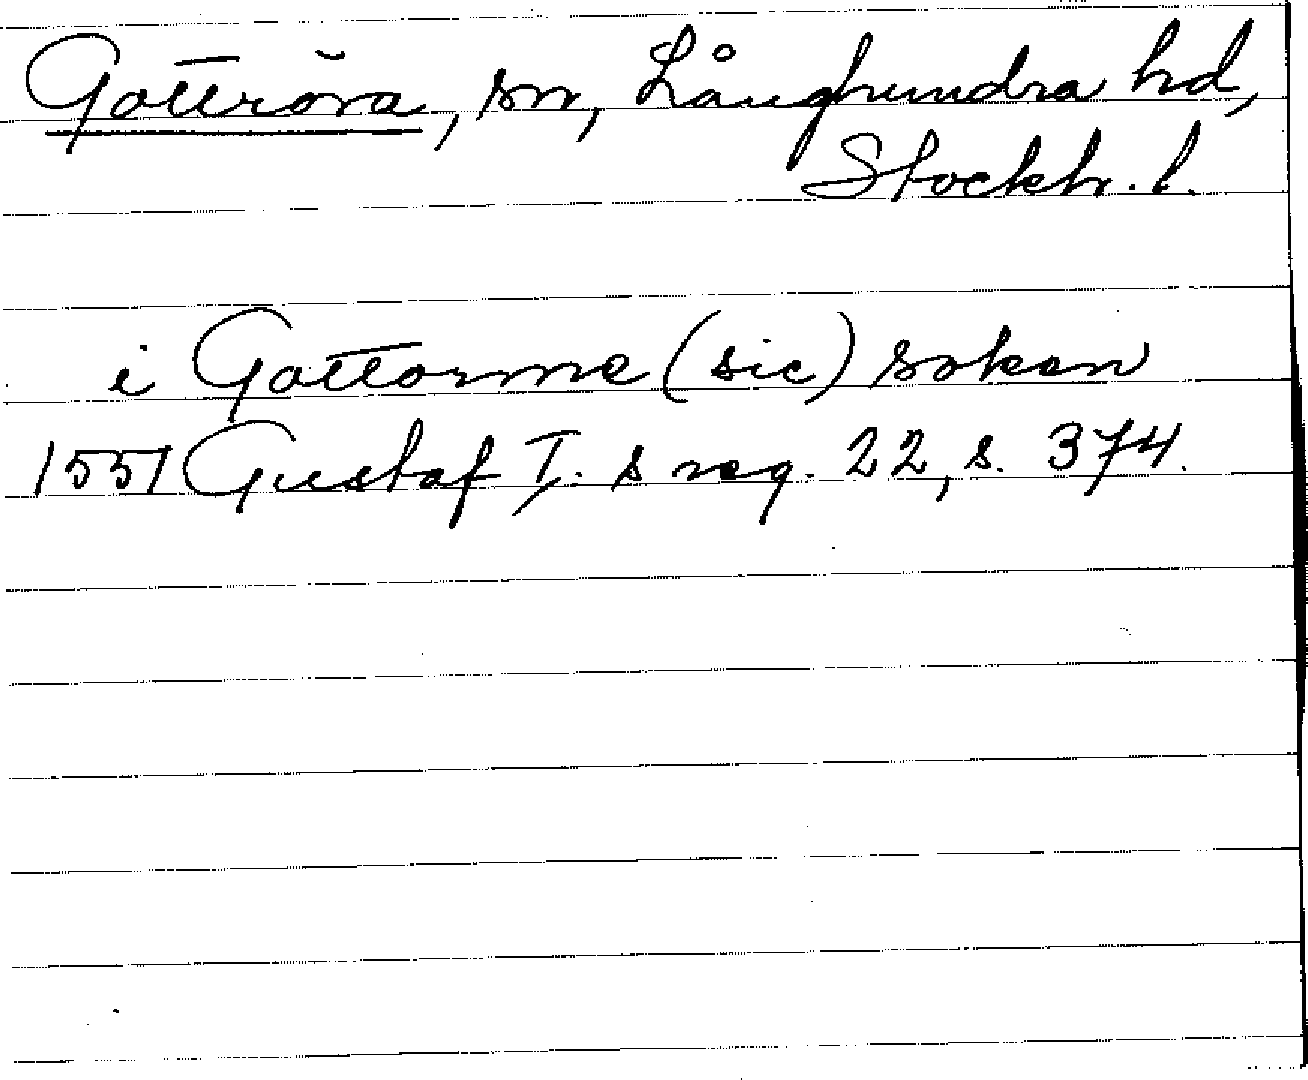 Gottröra, sn, Långhundra hd,
Stockh. l.
i Gottorme (sic) soken
1551 Gustaf I:s reg. 22, s. 374.